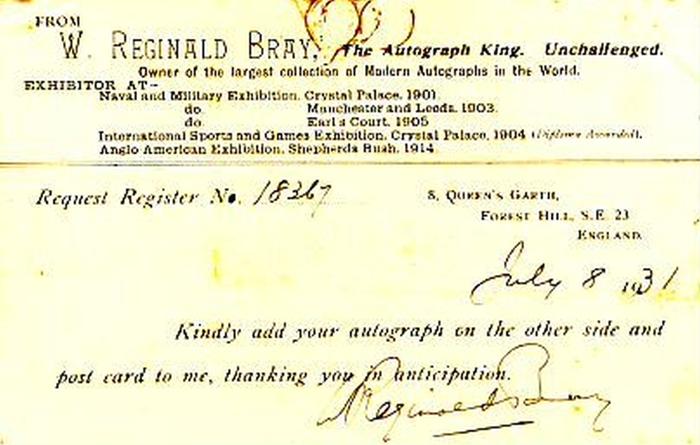 FROM
W. REGINALD BRAY, The Autograph King. Unchallenged.
Owner of the largest collection of Modern Autographs in the World.
EXHIBITOR AT—
Naval and Military Exhibition, Crystal Palace, 1901.
do. Manchester and Leeds, 1903.
do. Earl's Court, 1905
International Sports and Games Exhibition, Crystal Palace, 1904 (Diploma Awarded).
Anglo American Exhibition, Shepherds Bush, 1914.
Request Register No. 18367
8, QUEEN'S GARTH,
FOREST HILL, S.E. 23
ENGLAND.
July 8 1931
Kindly add your autograph on the other side and
post card to me, thanking you in anticipation.
W Reginald Bray